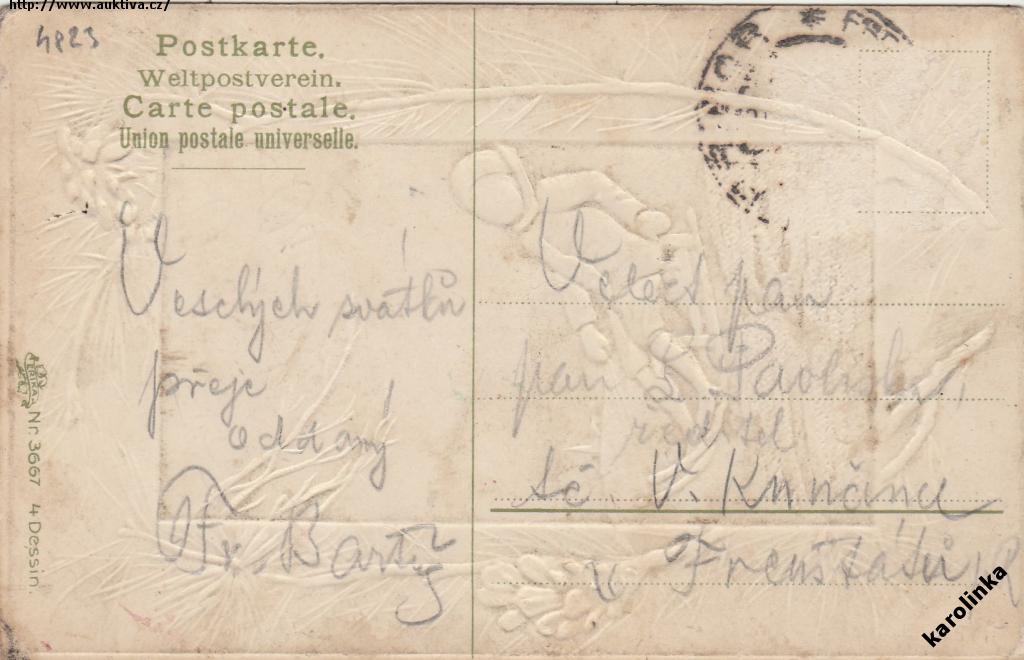 http://www.auktiva.cz/
4823
Postkarte.
Weltpostverein.
Carte postale.
Union postale universelle.
Veselých svátků
přeje
oddaný
Fr. Bartz
Velect. pan
pan
ředitel
v Frenštátě
ERIKA
Nr. 3667 4 Dessin
karolinka